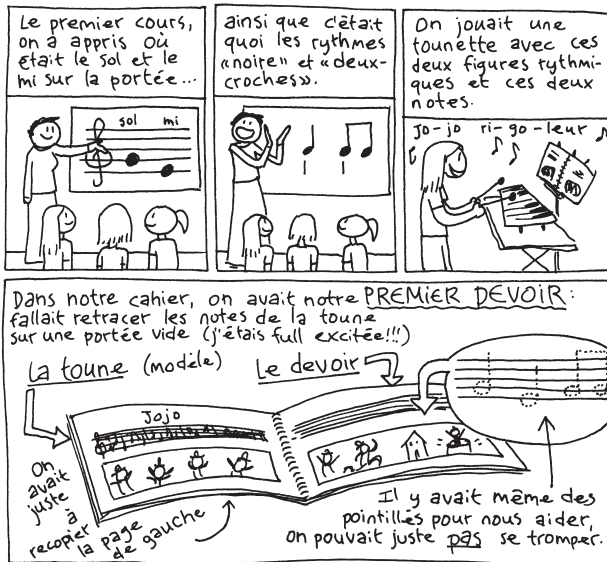 Le premier cours,
on a appris où
était le sol et le
mi sur la portée...
sol mi
ainsi que c'était
quoi les rythmes
«noire» et «deux-
croches».
On jouait une
tounette avec ces
deux figures rythmi-
ques et ces deux
notes.
Jo-jo ri-go-leur
Dans notre cahier, on avait notre PREMIER DEVOIR:
fallait retracer les notes de la toune
sur une portée vide (j'étais full excitée!!!)
La toune (modèle)
Le devoir
Jojo
On
avait
juste
à
recopier
la page
de gauche
Il y avait même des
pointillés pour nous aider,
on pouvait juste pas se tromper.